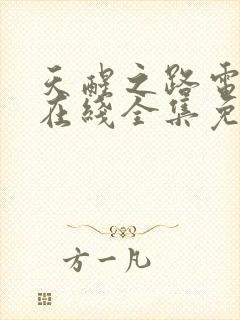 天醒之路电
在线全集免
方一凡